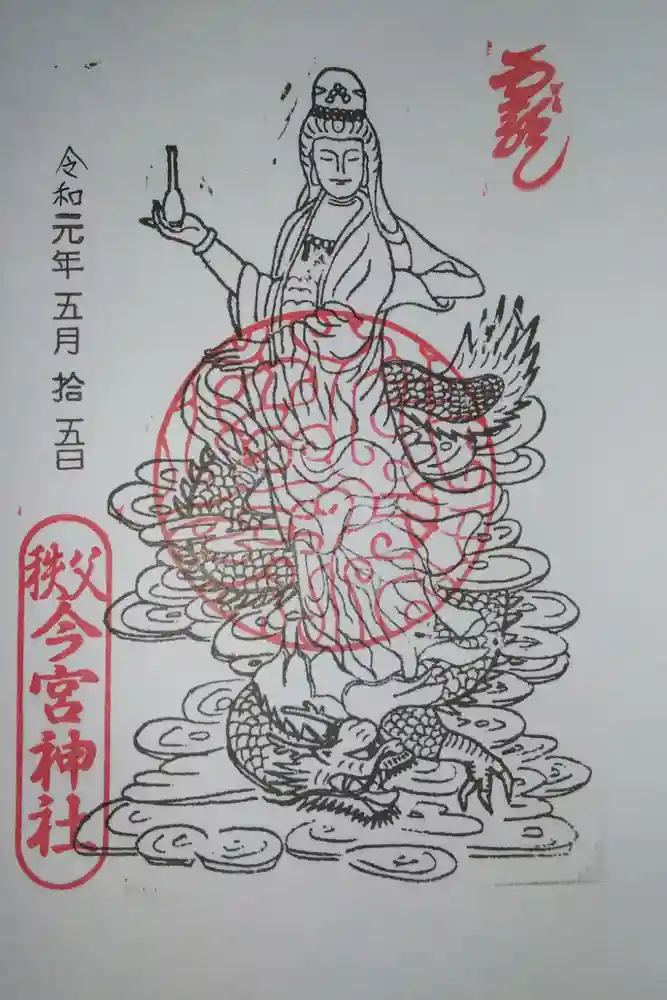 令和元年五月拾五日
秩父
今宮神社